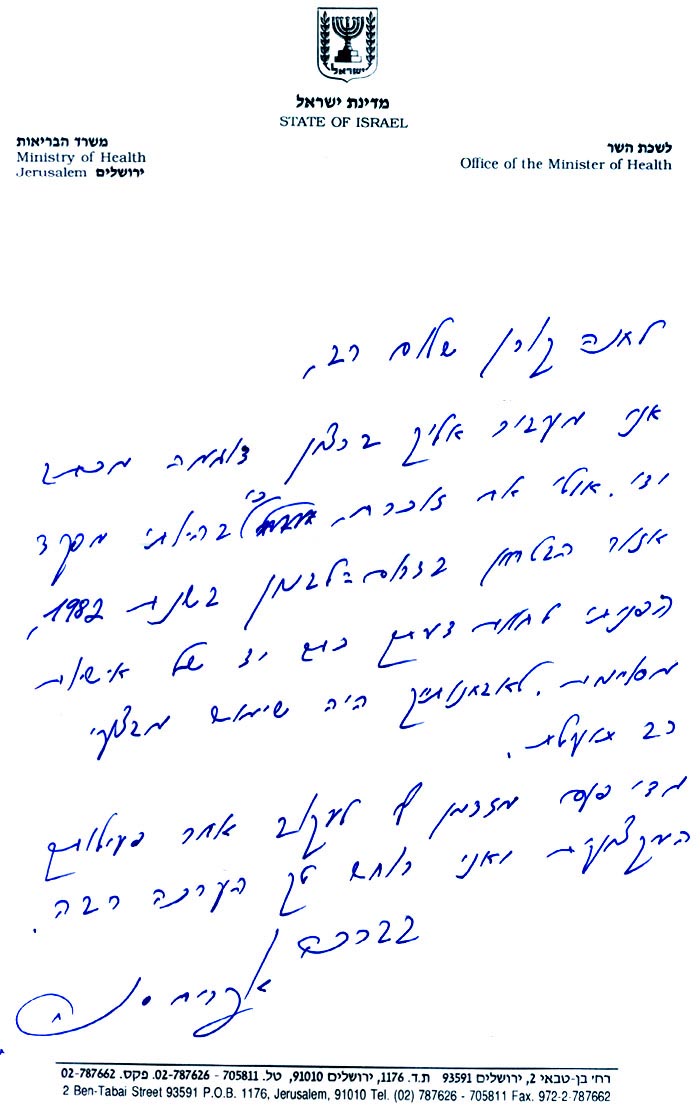 ישראל
מדינת ישראל
STATE OF ISRAEL
משרד הבריאות
Ministry of Health
Jerusalem ירושלים
לשכת השר
Office of the Minister of Health
לאנה קורן שלום רב,
אני מעביר אליך ברצון דוגמה מכתב
ידי. אולי את זוכרת, כי בהיותי מפקד
אזור הבטחון בדרום-לבנון בשנת 1982,
הפניתי לחוות דעתך כתב יד של אישיות
מסויימת. לאבחנותייך היה שימוש מבצעי
רב תועלת.
מדי פעם מזדמן לי לעקוב אחר פעילותך
המקצועית ואני רוחש לך הערכה רבה.
בברכה
אפרים סנה
רח' בן-טבאי 2, ירושלים 93591 ת.ד. 1176, ירושלים 91010, טל. 705811 - 02-787626. פקס. 02-787662
2 Ben-Tabai Street 93591 P.O.B. 1176, Jerusalem, 91010 Tel. (02) 787626 - 705811 Fax. 972-2-787662